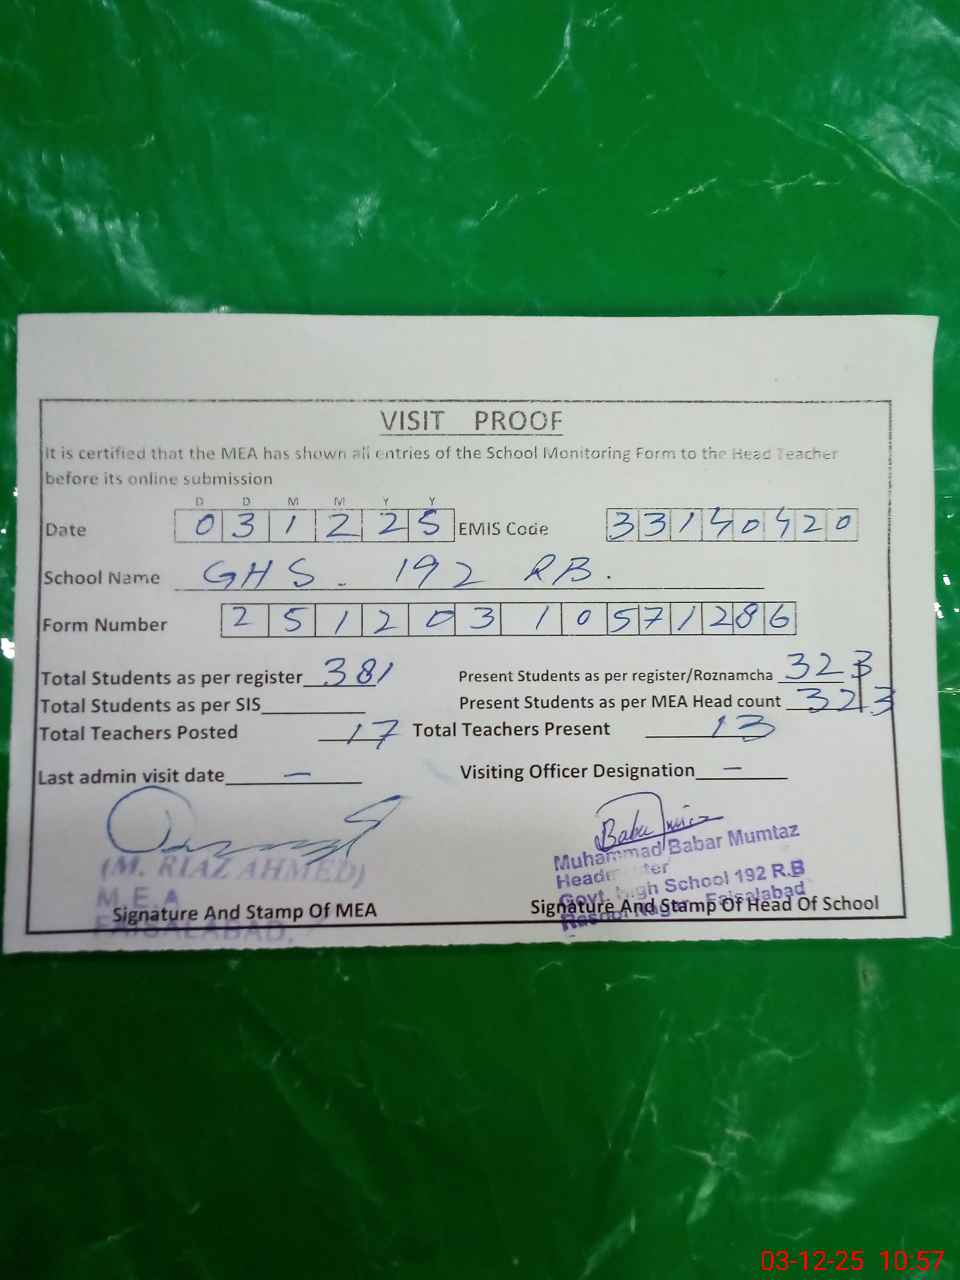 VISIT PROOF
It is certified that the MEA has shown all entries of the School Monitoring Form to the Head Teacher
before its online submission
D D M M Y Y
Date 0 3 1 2 2 5 EMIS Code 3 3 1 4 0 4 2 0
School Name GHS. 192 RB.
Form Number 2 5 1 2 0 3 1 0 5 7 1 2 8 6
Total Students as per register 381 Present Students as per register/Roznamcha 323
Total Students as per SIS Present Students as per MEA Head count 323
Total Teachers Posted 17 Total Teachers Present 13
Last admin visit date — Visiting Officer Designation —
(M. RIAZ AHMED)
M.E.A
FAISALABAD.
Signature And Stamp Of MEA
Muhammad Babar Mumtaz
Govt. High School 192 R.B
Faisalabad
Signature And Stamp Of Head Of School
03-12-25 10:57